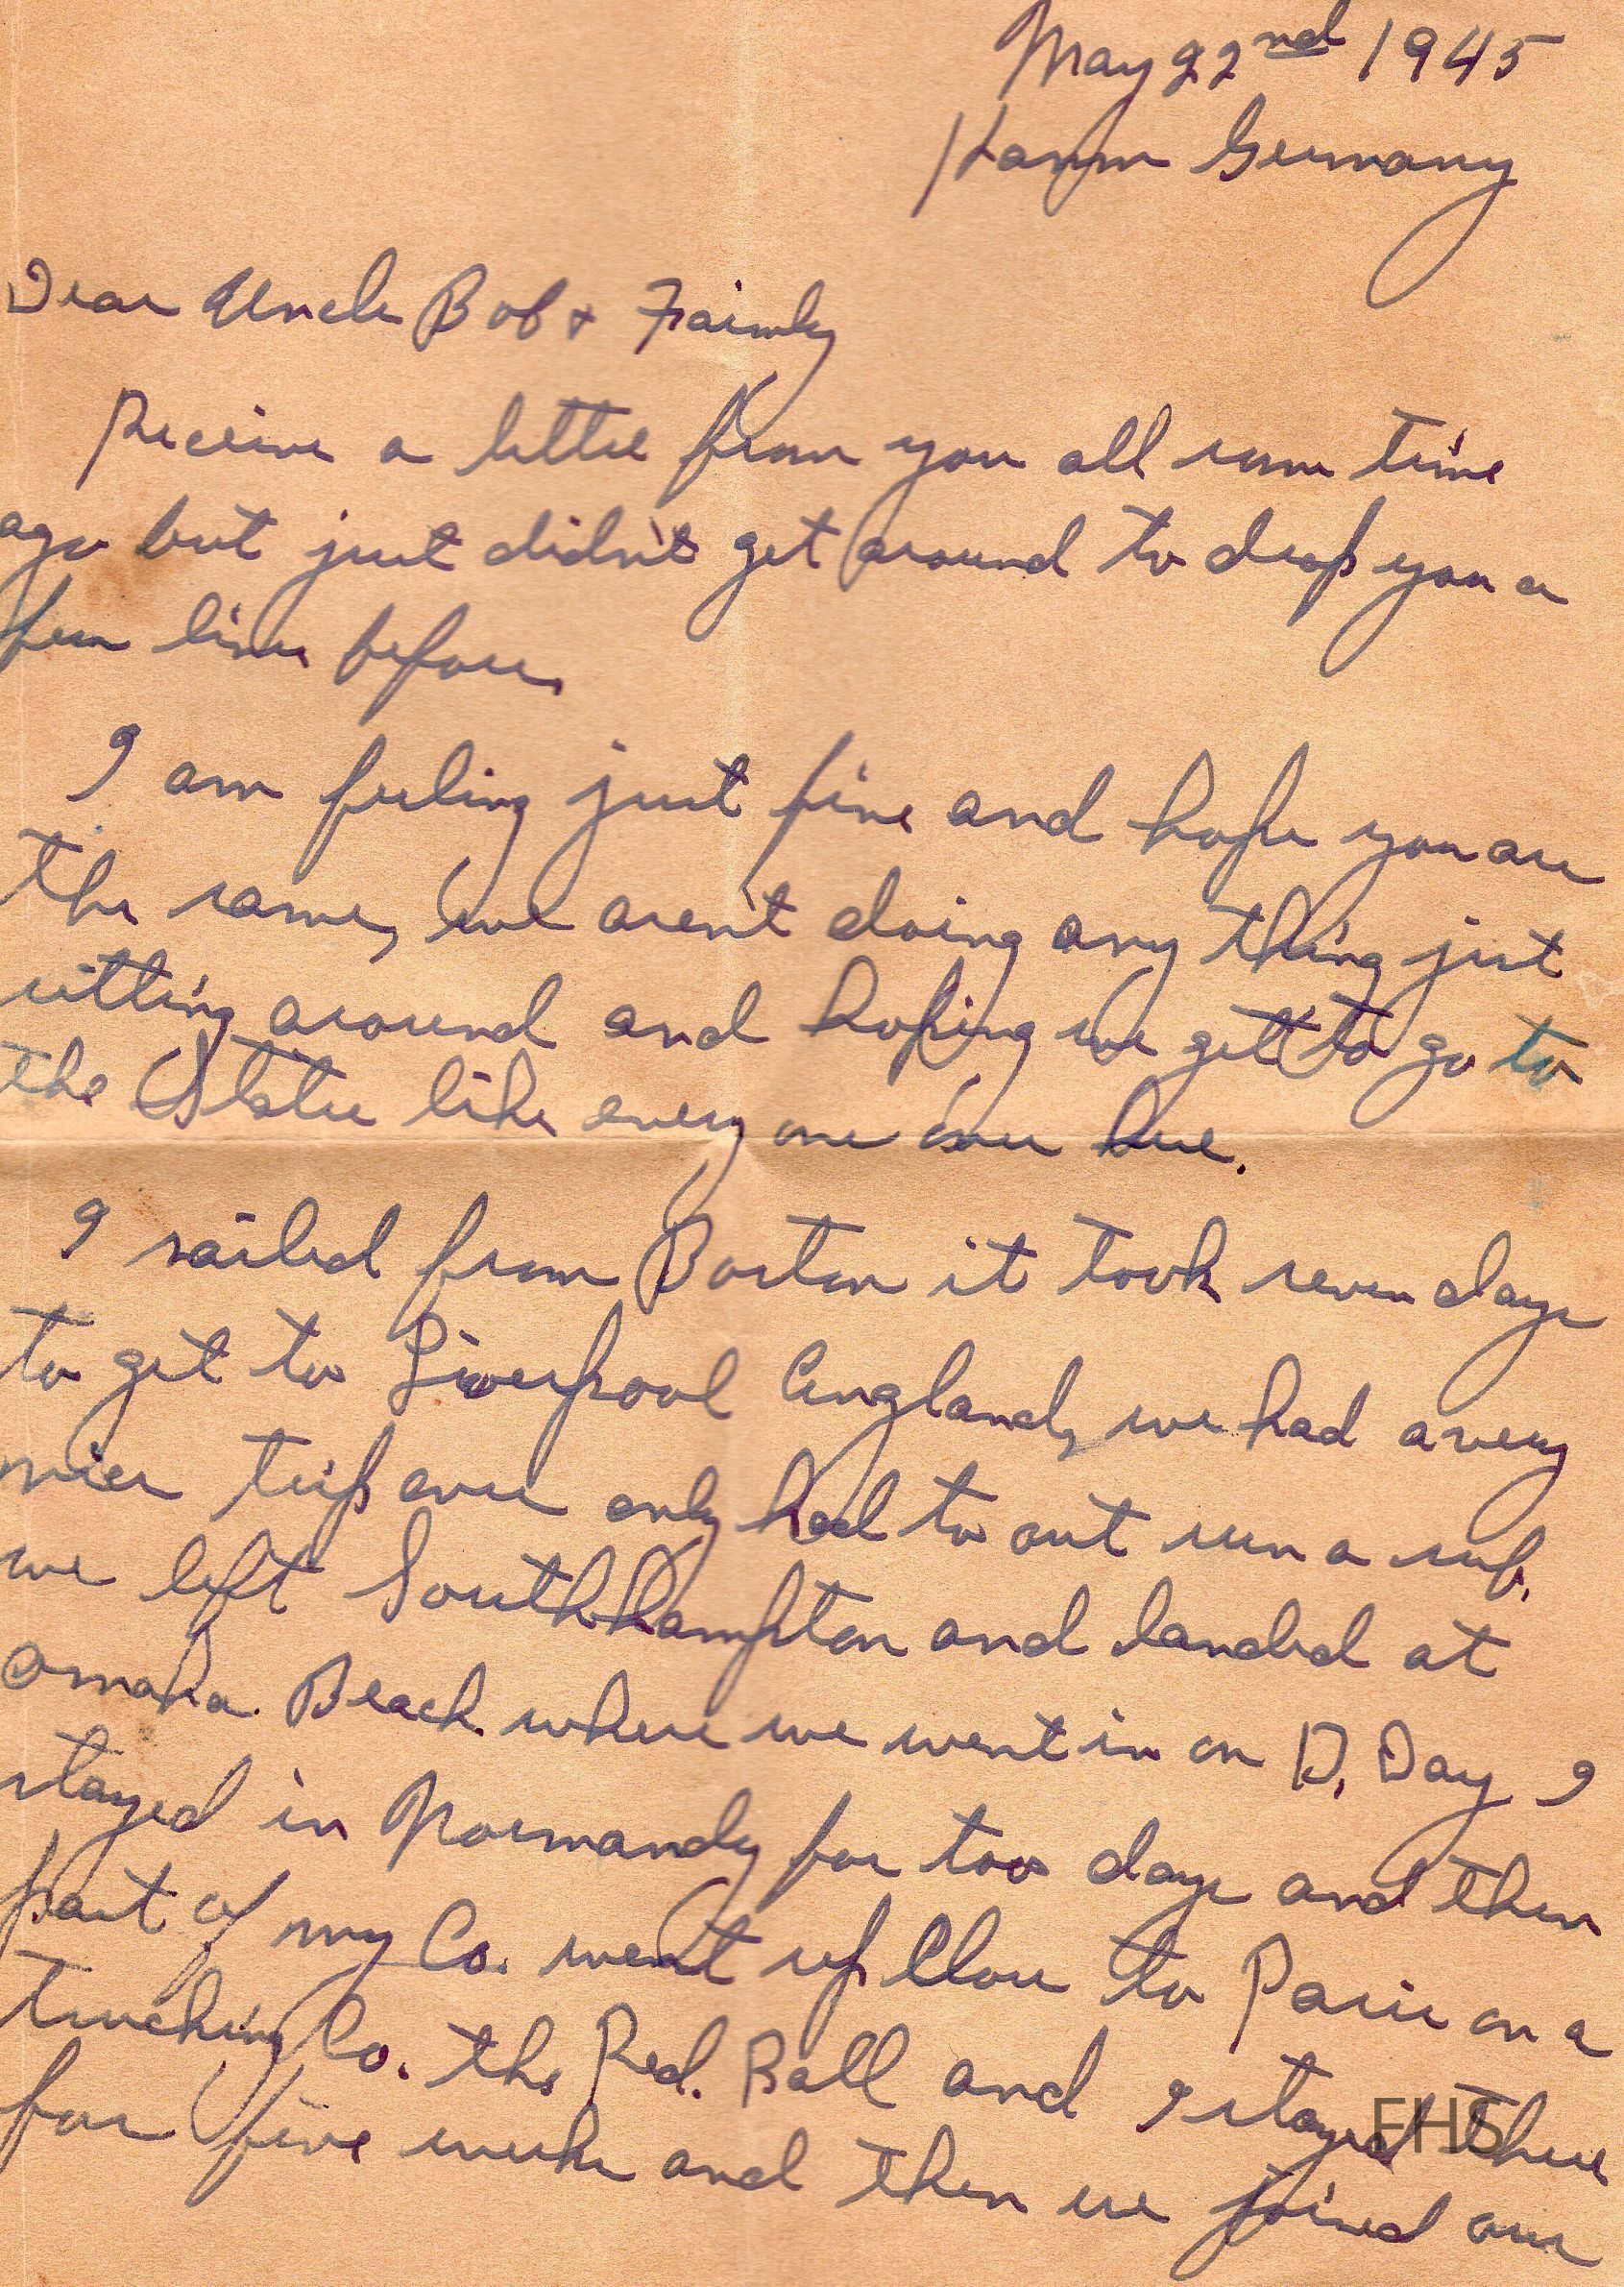 May 22nd 1945
Hamm Germany
Dear Uncle Bob + Faimly
Receive a letter from you all some time
ago but just didn't get around to drop you a
few lines before.
I am feeling just fine and hope you are
the same, we aren't doing any thing just
sitting around and hoping we get to go to
the States like every one over here.
I sailed from Boston it took seven days
to get to Liverpool England, we had a very
nice trip over only had to out run a sub,
we left Southhampton and landed at
Omaha Beach where we went in on D, Day I
stayed in Normandy for too days and then
part of my Co. went up Close to Paris on a
trucking Co. the Red. Ball and I stayed there
for five weeks and then we joined our
FHS